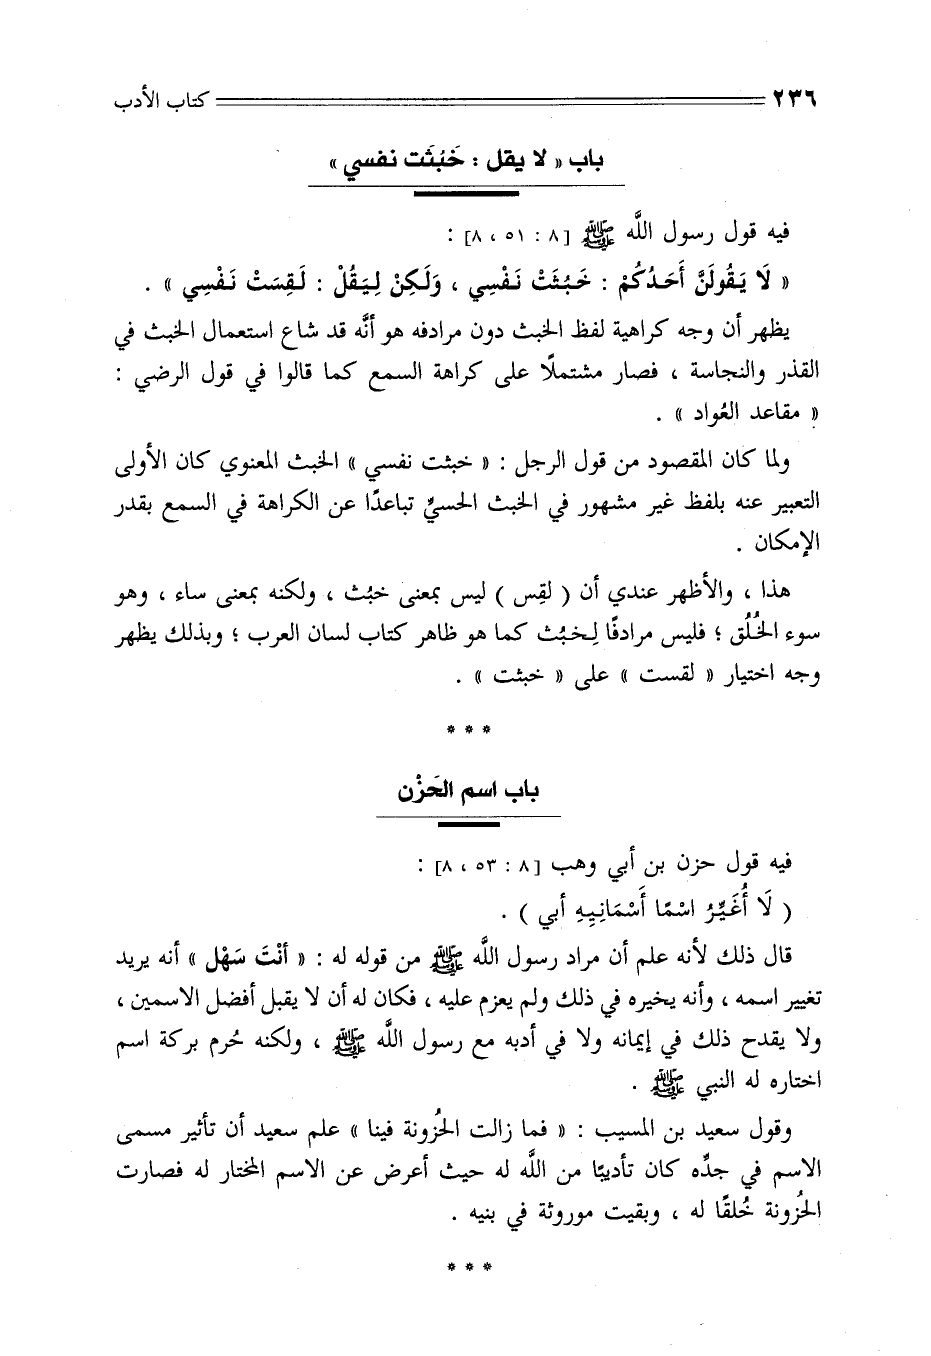 ٢٣٦ كتاب الأدب
باب « لا يقل : خَبُثَت نفسي »
فيه قول رسول اللَّه ﷺ [٨ : ٥١ ، ٨] :
« لَا يَقُولَنَّ أَحَدُكُمْ : خَبُثَتْ نَفْسِي ، وَلَكِنْ لِيَقُلْ : لَقِسَتْ نَفْسِي » .
يظهر أن وجه كراهية لفظ الخبث دون مرادفه هو أنَّه قد شاع استعمال الخبث في
القذر والنجاسة ، فصار مشتملًا على كراهة السمع كما قالوا في قول الرضي :
« مقاعد العُواد » .
ولما كان المقصود من قول الرجل : « خبثت نفسي » الخبث المعنوي كان الأولى
التعبير عنه بلفظ غير مشهور في الخبث الحسيِّ تباعدًا عن الكراهة في السمع بقدر
الإمكان .
هذا ، والأظهر عندي أن ( لقِس ) ليس بمعنى خبُث ، ولكنه بمعنى ساء ، وهو
سوء الخُلُق ؛ فليس مرادفًا لِخبُث كما هو ظاهر كتاب لسان العرب ؛ وبذلك يظهر
وجه اختيار « لقست » على « خبثت » .
* * *
باب اسم الحَزْن
فيه قول حزن بن أبي وهب [٨ : ٥٣ ، ٨] :
( لَا أُغَيِّرُ اسْمًا أَسْمَانِيهِ أبي ) .
قال ذلك لأنه علم أن مراد رسول اللَّه ﷺ من قوله له : « أنْتَ سَهْل » أنه يريد
تغيير اسمه ، وأنه يخيره في ذلك ولم يعزم عليه ، فكان له أن لا يقبل أفضل الاسمين ،
ولا يقدح ذلك في إيمانه ولا في أدبه مع رسول اللَّه ﷺ ، ولكنه حُرم بركة اسم
اختاره له النبي ﷺ .
وقول سعيد بن المسيب : « فما زالت الحُزونة فينا » علم سعيد أن تأثير مسمى
الاسم في جدِّه كان تأديبًا من اللَّه له حيث أعرض عن الاسم المختار له فصارت
الحُزونة خُلقًا له ، وبقيت موروثة في بنيه .
* * *